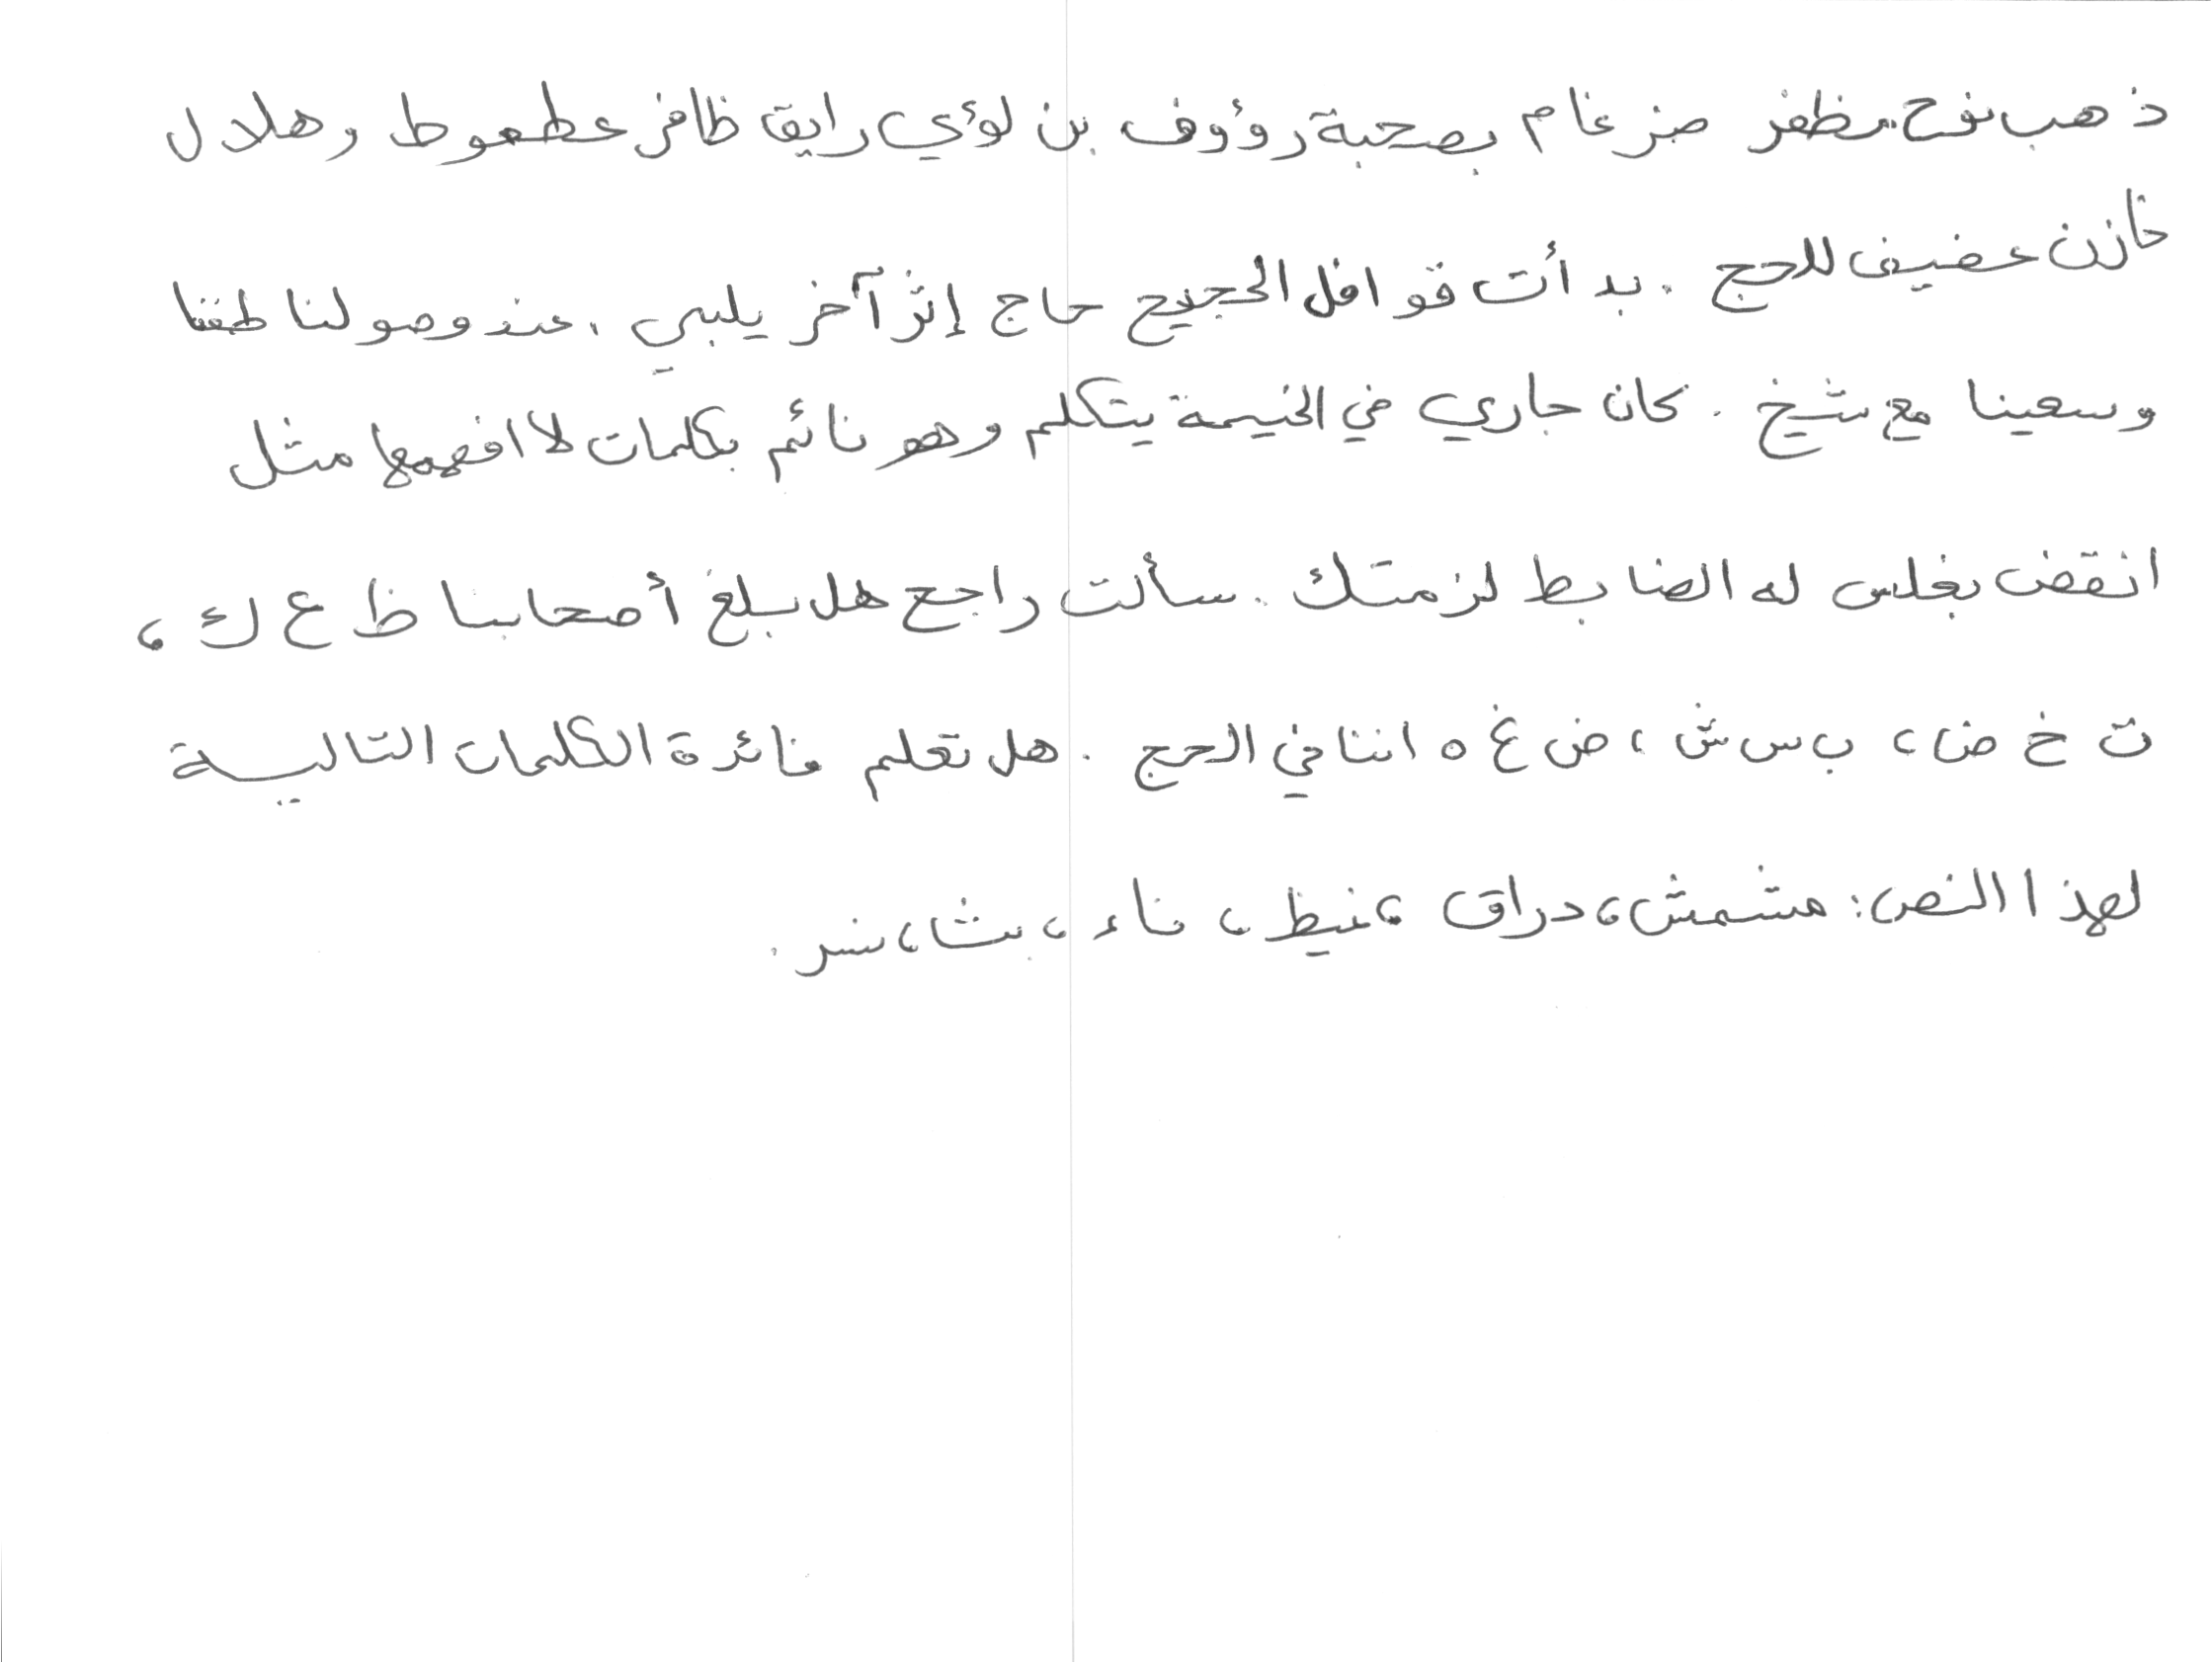 ذهب نوح مظفر ضرغام بصحبة رؤوف بن لؤي رايق ظافر عطعوط وهلال
خازن عضيف للحج . بدأت قوافل الحجيج حاج إثر آخر يلبي ، عند وصولنا طفنا
وسعينا مع شيخ . كان جاري في الخيمة يتكلم وهو نائم بكلمات لا افهمها مثل
انقض بغلس له الضابط لزمتك . سألت راجح هل بلغ أصحابنا ظ ع ك ،
ث خ ض ، ب س ش ، ض غ ه اننا في الحج . هل تعلم فائدة الكلمات التالية
لهذا النص : مشمش ، دراق ، غيظ ، ناء ، بشا ، نسر .